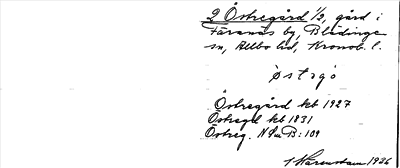 2 Östregård 1/3, gård i
Färanäs by, Blädinge
sn, Allbo hd, Kronob. l.
östrgö
Östregård kb 1927
Östregd kb 1831
Östreg. NLmB: 109
1936